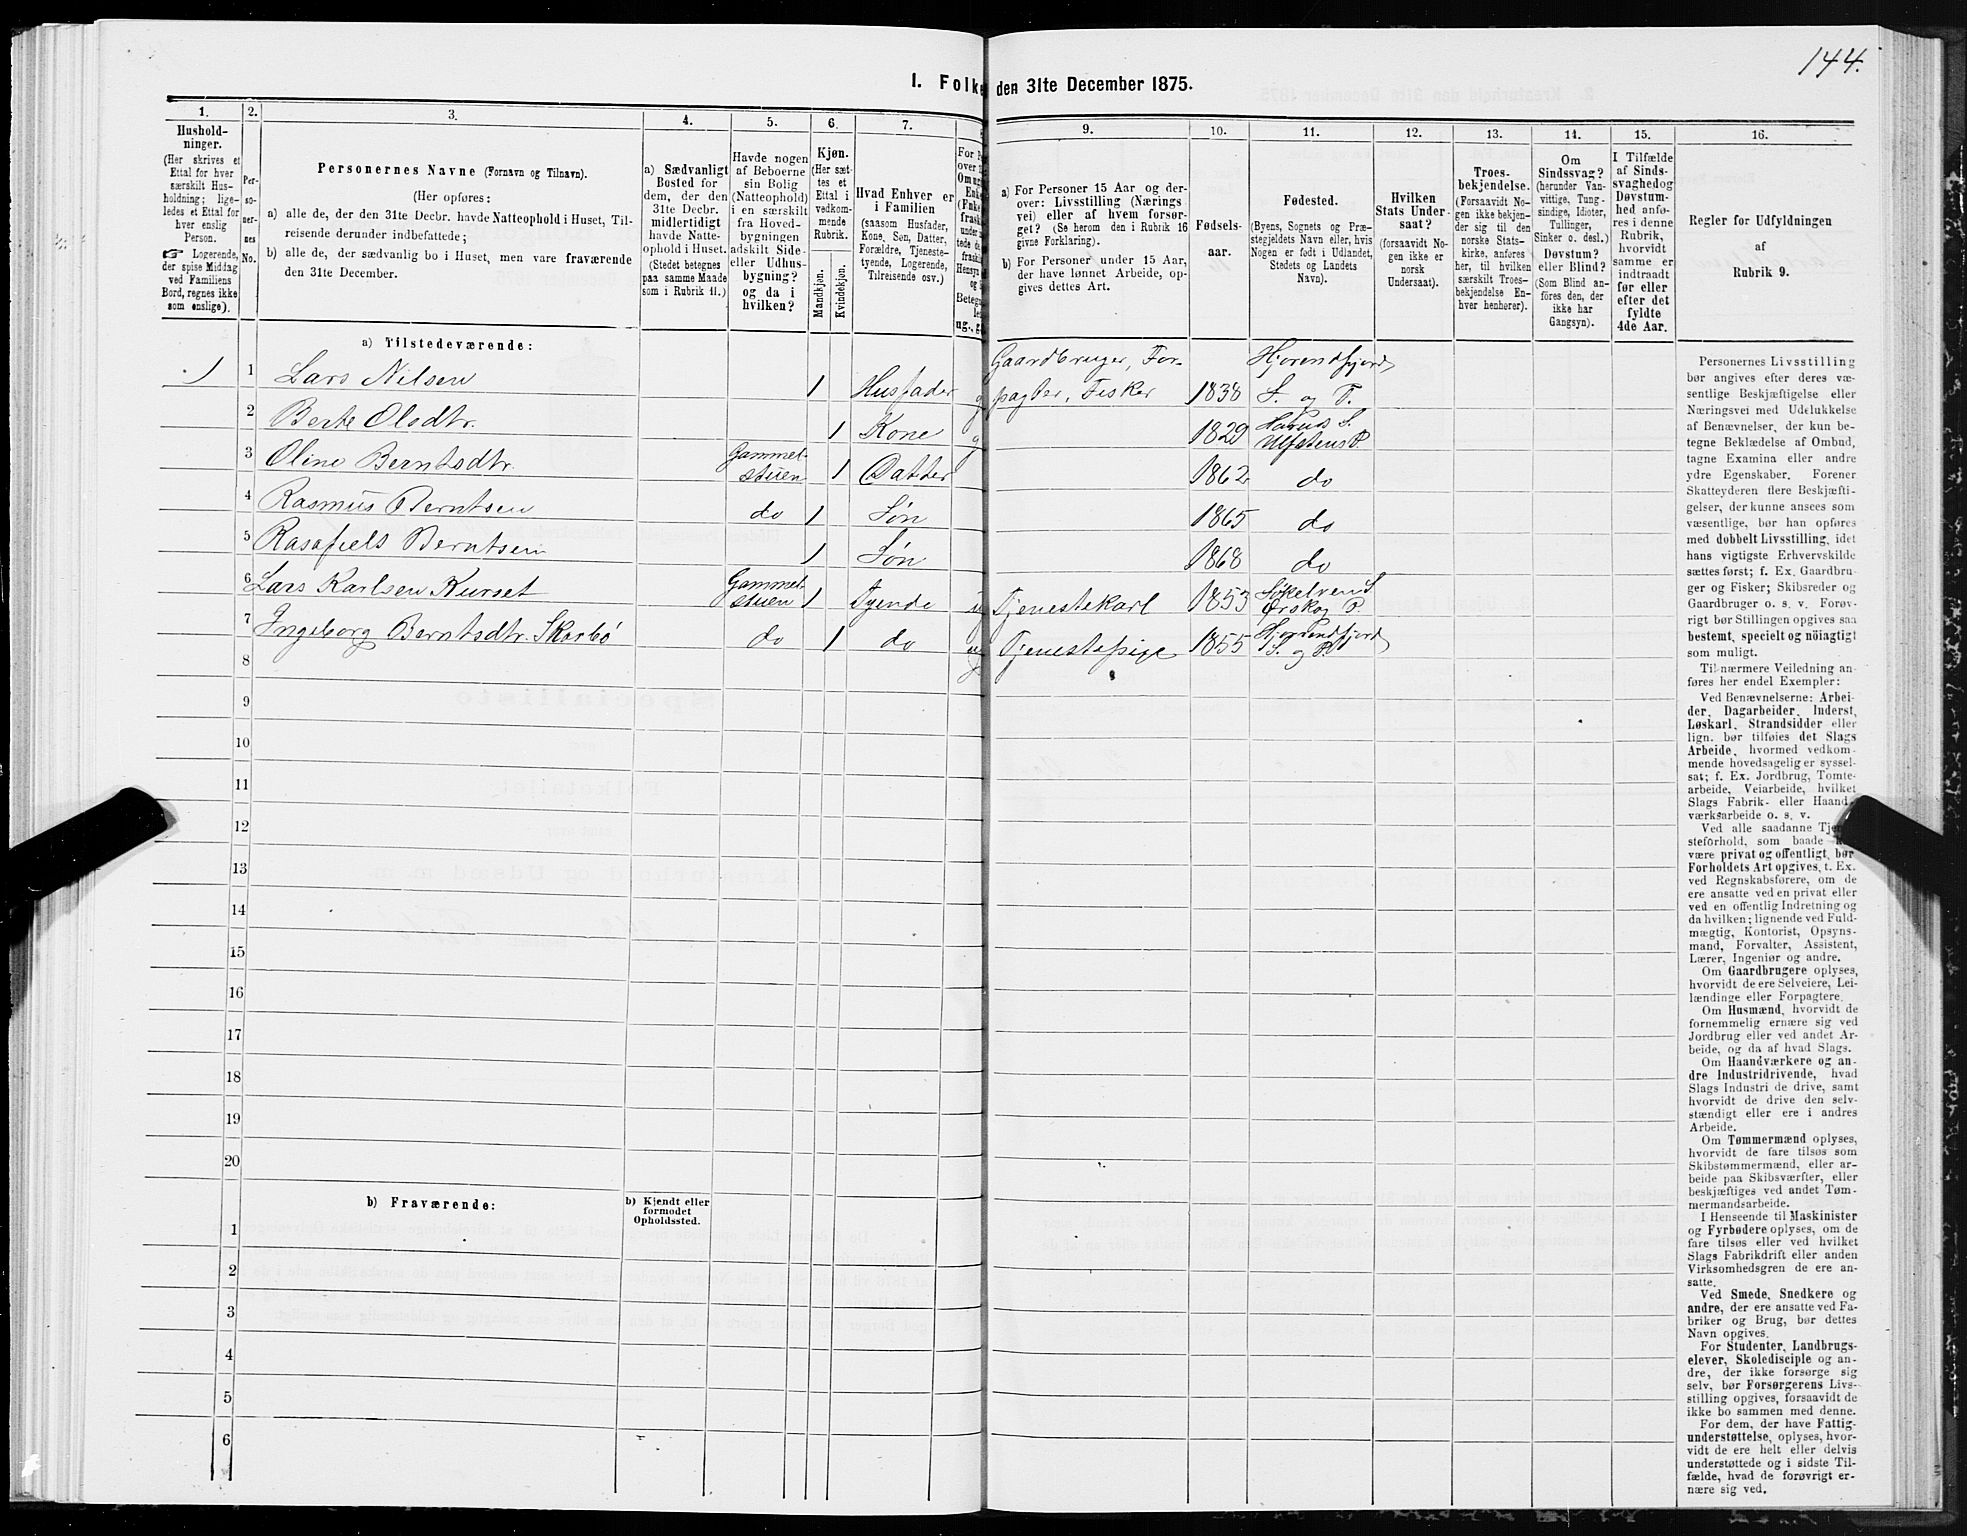 144.
I. Folke den 31te December 1875.
1. 2. 3. 4. 5. 6. 7. 9. 10. 11. 12. 13. 14. 15. 16.
Hushold-
ninger.
(Her skrives et
Ettal for hver
særskilt Hus-
holdning; lige-
ledes et Ettal for
hver enslig
Person.
☞ Logerende,
der spise Middag
ved Familiens
Bord, regnes ikke
som enslige).
Per-
so-
ner-
nes
No.
Personernes Navne (Fornavn og Tilnavn).
(Her opføres:
a) alle de, der den 31te Decbr. havde Natteophold i Huset, Til-
reisende derunder indbefattede;
b) alle de, der sædvanlig bo i Huset, men vare fraværende
den 31te December.
a) Sædvanligt
Bosted for
dem, der den
31te Decbr.
midlertidigt
havde Natte-
ophold i Huset.
(Stedet betegnes
paa samme Maade
som i Rubrik 11.)
Havde nogen
af Beboerne
sin Bolig
(Natteophold)
i en særskilt
fra Hoved-
bygningen
adskilt Side-
eller Udhus-
bygning?
og da i
hvilken?
Kjøn.
(Her sæt-
tes et
Ettal i
vedkom-
mende
Rubrik.
Mandkjøn.
Kvindekjøn.
Hvad Enhver er
i Familien
(saasom Husfader,
Kone, Søn, Datter,
Forældre, Tjeneste-
tyende, Logerende,
Tilreisende osv.)
a) For Personer 15 Aar og der-
over: Livsstilling (Nærings-
vei) eller af hvem forsør-
get? (Se herom den i Rubrik 16
givne Forklaring).
b) For Personer under 15 Aar,
der have lønnet Arbeide, op-
gives dettes Art.
Fødsels-
aar.
Fødested.
(Byens, Sognets og Præ-
stegjeldets Navn eller, hvis
Nogen er født i Udlandet,
Stedets og Landets
Navn).
Hvilken
Stats Under-
saat?
(forsaavidt No-
gen ikke er
norsk
Undersaat).
Troes-
bekjendelse.
(Forsaavidt No-
gen ikke bekjen-
der sig til den
norske Stats-
kirke, anføres
her, til hvilken
særskilt Troes-
bekjendelse En-
hver henhører).
Om
Sindssvag?
(herunder Van-
vittige, Tung-
sindige, Idioter,
Tullinger,
Sinker o. desl.)
Døvstum?
eller Blind?
(Som Blind an-
føres den, der
ikke har
Gangsyn).
I Tilfælde
af Sinds-
svaghed og
Døvstum-
hed anfø-
res i denne
Rubrik,
hvorvidt
samme er
indtraadt
før eller
efter det
fyldte
4de Aar.
Regler for Udfyldningen
af
Rubrik 9.
a) Tilstedeværende:
1 1 Lars Nilsen 1 Husfader g Gaardbruger, For-
pagter, Fisker 1838 Hjorendfjord
S. og P.
2 Berte Olsdtr. 1 Kone g 1829 Harus S.
Ulfstens P
3 Oline Berntsdtr. Gammel-
stuen 1 Datter 1862 do
4 Rasmus Berntsen do 1 Søn 1865 do
5 Rasafiels Berntsen 1 Søn 1868 do
6 Lars Karlsen Kurset Gammel-
stuen 1 Tyende ug Tjenestekarl 1853 Søkelven S.
Ørskog P.
7 Ingeborg Berntsdtr. Skarbø do 1 do ug Tjenestepige 1855 Hjorendfjord
S. og P.
8
9
10
11
12
13
14
15
16
17
18
19
20
b) Fraværende:
b) Kjendt eller
formodet
Opholdssted.
1
2
3
4
5
6
Personernes Livsstilling
bør angives efter deres væ-
sentlige Beskjæftigelse eller
Næringsvei med Udelukkelse
af Benævnelser, der kun be-
tegne Beklædelse af Ombud,
tagne Examina eller andre
ydre Egenskaber. Forener
Skatteyderen flere Beskjæfti-
gelser, der kunne ansees som
væsentlige, bør han opføres
med dobbelt Livsstilling, idet
hans vigtigste Erhvervskilde
sættes først; f. Ex. Gaardbru-
ger og Fisker; Skibsreder og
Gaardbruger o. s. v. Forøv-
rigt bør Stillingen opgives saa
bestemt, specielt og nøiagtigt
som muligt.
Til nærmere Veiledning an-
føres her endel Exempler:
Ved Benævnelserne: Arbei-
der, Dagarbeider, Inderst,
Løskarl, Strandsidder eller
lign. bør tilføies det Slags
Arbeide, hvormed vedkom-
mende hovedsagelig er syssel-
sat; f. Ex. Jordbrug, Tomte-
arbeide, Veiarbeide, hvilket
Slags Fabrik- eller Haand-
værksarbeide o. s. v.
Ved alle saadanne Tjene-
steforhold, som baade kan
være privat og offentligt, bør
Forholdets Art opgives, t. Ex.
ved Regnskabsførere, om de
ere ansatte ved en privat eller
ved en offentlig Indretning og
da hvilken; lignende ved Fuld-
mægtig, Kontorist, Opsyns-
mand, Forvalter, Assistent,
Lærer, Ingeniør og andre.
Om Gaardbrugere oplyses,
hvorvidt de ere Selveiere, Lei-
lændinge eller Forpagtere.
Om Husmænd, hvorvidt de
fornemmelig ernære sig ved
Jordbrug eller ved andet Ar-
beide, og da af hvad Slags.
Om Haandværkere og an-
dre Industridrivende, hvad
Slags Industri de drive, samt
hvorvidt de drive den selv-
stændigt eller ere i andres
Arbeide.
Om Tømmermænd oplyses,
hvorvidt de fare tilsøs som
Skibstømmermænd, eller ar-
beide paa Skibsværfter, eller
beskjæftiges ved andet Tøm-
mermandsarbeide.
I Henseende til Maskinister
og Fyrbødere oplyses, om de
fare tilsøs eller ved hvilket
Slags Fabrikdrift eller anden
Virksomhedsgren de ere an-
satte.
Ved Smede, Snedkere og
andre, der ere ansatte ved Fa-
briker og Brug, bør dettes
Navn opgives.
For Studenter, Landbrugs-
elever, Skoledisciple og an-
dre, der ikke forsørge sig
selv, bør Forsørgerens Livs-
stilling opgives, forsaavidt de
ikke bo sammen med denne.
For dem, der have Fattig-
understøttelse, oplyses, hvor-
vidt de ere helt eller delvis
understøttede og i sidste Til-
fælde, hvad de forøvrigt er-
nære sig ved.